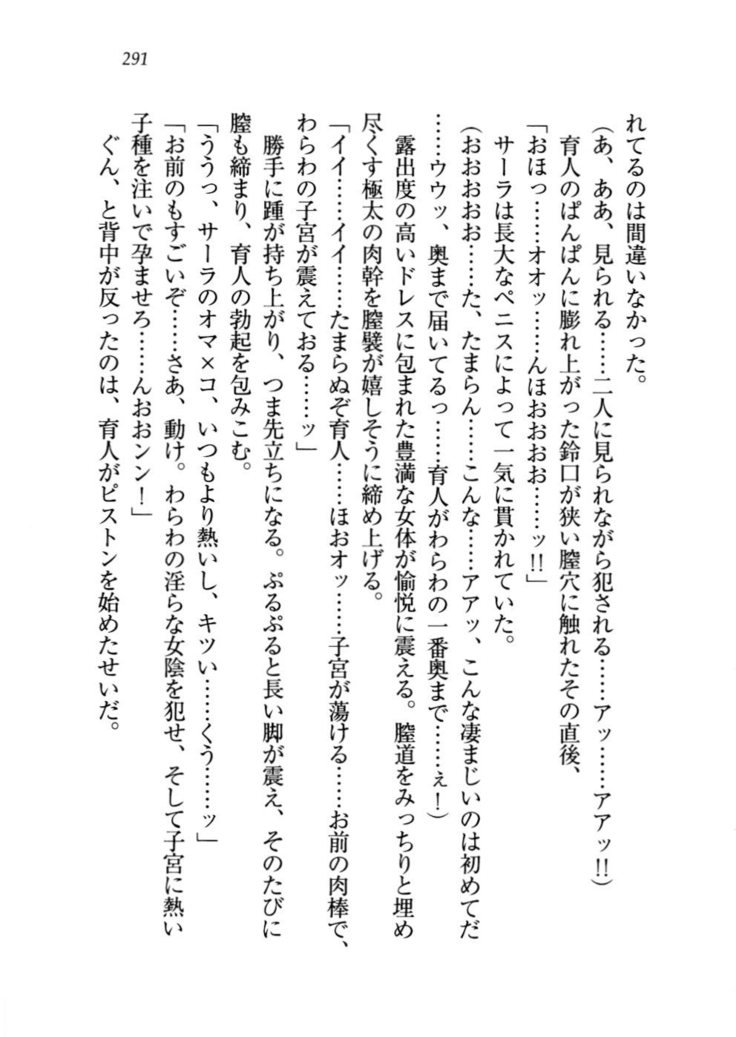 291
れてるのは間違いなかった。
(あ、ああ、見られる……二人に見られながら犯される……アッ……アアッ!!)
育人のぱんぱんに膨れ上がった鈴口が狭い膣穴に触れたその直後、
「おほっ……オオッ……んほおおおお……ッ!!」
サーラは長大なペニスによって一気に貫かれていた。
(おおおおお……た、たまらん……こんな……アアッ、こんな凄まじいのは初めてだ
……ウウッ、奥まで届いてるっ……育人がわらわの一番奥まで……ぇ!)
露出度の高いドレスに包まれた豊満な女体が愉悦に震える。膣道をみっちりと埋め
尽くす極太の肉幹を膣襞が嬉しそうに締め上げる。
「イイ……イイ……たまらぬぞ育人……ほおオッ……子宮が蕩ける……お前の肉棒で、
わらわの子宮が震えておる……ッ」
勝手に踵が持ち上がり、つま先立ちになる。ぷるぷると長い脚が震え、そのたびに
膣も締まり、育人の勃起を包みこむ。
「ううっ、サーラのオマ×コ、いつもより熱いし、キツい……くう……ッ」
「お前のもすごいぞ……さあ、動け。わらわの淫らな女陰を犯せ、そして子宮に熱い
子種を注いで孕ませろ……んおおンン!」
ぐん、と背中が反ったのは、育人がピストンを始めたせいだ。